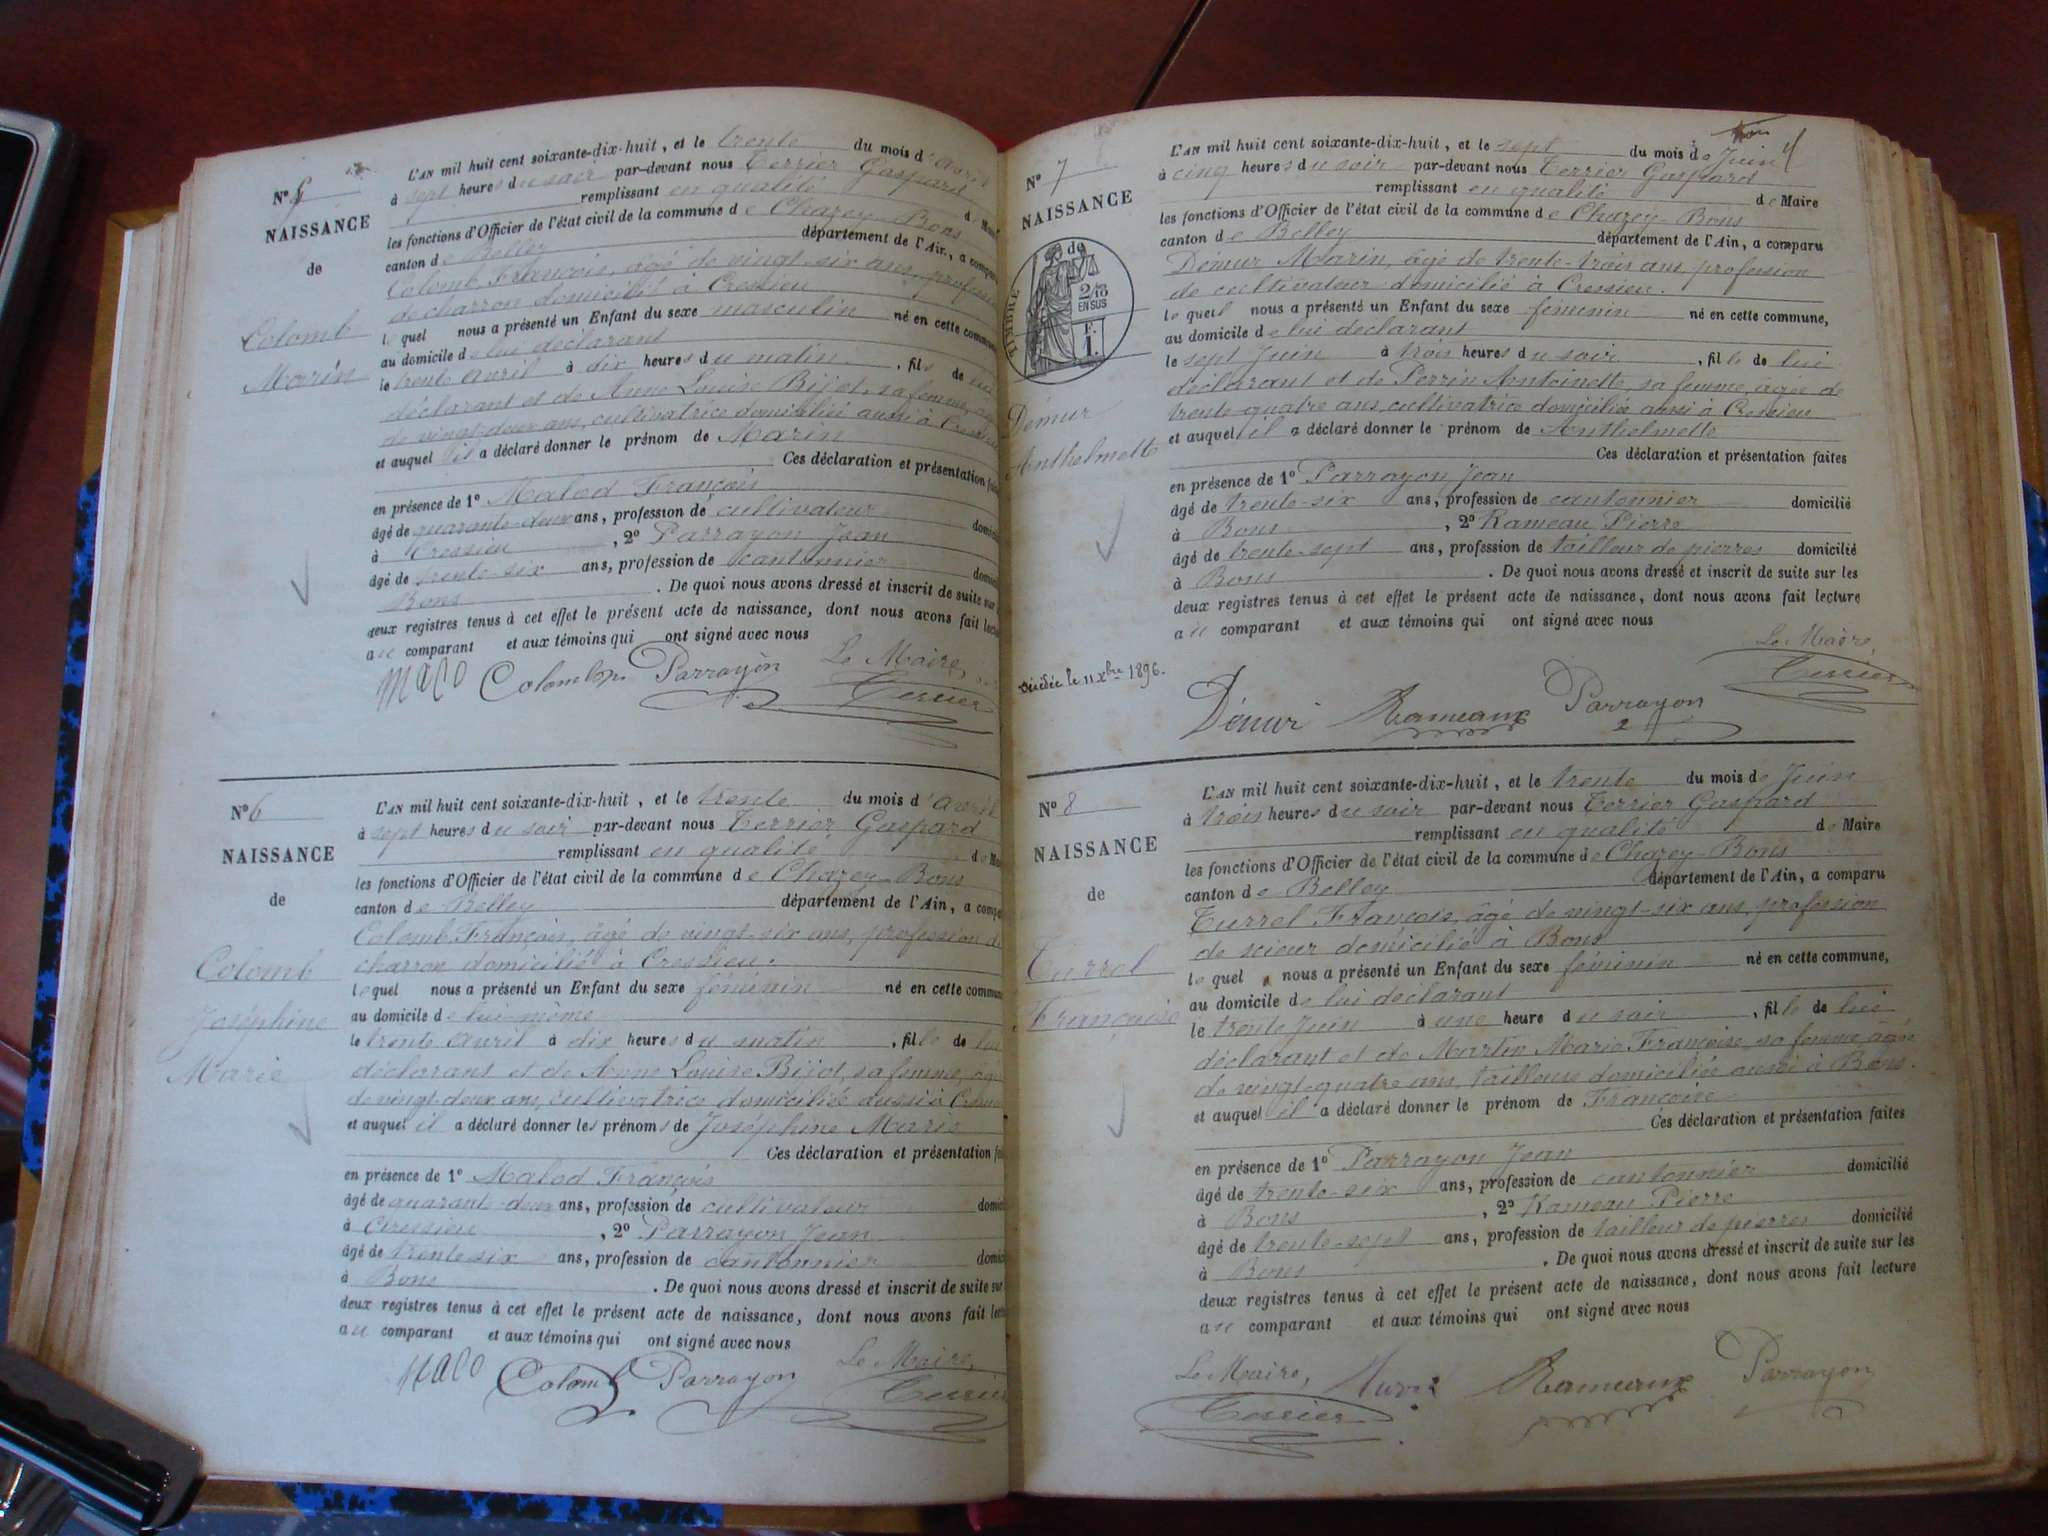 Nº 5
NAISSANCE
de
Colomb
Marin
L'AN mil huit cent soixante-dix-huit, et le trente du mois d'avril
à sept heures du soir par-devant nous Terrier Gaspard
remplissant en qualité de Maire
les fonctions d'Officier de l'état civil de la commune de Chazey-Bons
canton de Belley département de l'Ain, a comparu
Colomb François, âgé de vingt-six ans, profession
de charron domicilié à Cressieu
lequel nous a présenté un Enfant du sexe masculin né en cette commune
au domicile de lui déclarant
le trente avril à dix heures du matin, fils de lui
déclarant et de Anne Louise Bijot, sa femme, âgée
de vingt-deux ans, cultivatrice domiciliée aussi à Cressieu
et auquel il a déclaré donner le prénom de Marin
Ces déclaration et présentation faites
en présence de 1º Malod François
âgé de quarante-deux ans, profession de cultivateur domicilié
à Cressieu, 2º Parrayon Jean
âgé de trente-six ans, profession de cantonnier domicilié
Bons. De quoi nous avons dressé et inscrit de suite sur les
deux registres tenus à cet effet le présent acte de naissance, dont nous avons fait lecture
au comparant et aux témoins qui ont signé avec nous
Le Maire,
Malo Colomb Parrayon Terrier
Nº 6
NAISSANCE
de
Colomb
Joséphine
Marie
L'AN mil huit cent soixante-dix-huit, et le trente du mois d'avril
à sept heures du soir par-devant nous Terrier Gaspard
remplissant en qualité de Maire
les fonctions d'Officier de l'état civil de la commune de Chazey-Bons
canton de Belley département de l'Ain, a comparu
Colomb François, âgé de vingt-six ans, profession de
charron domicilié à Cressieu.
lequel nous a présenté un Enfant du sexe féminin né en cette commune
au domicile de lui-même
le trente avril à dix heures du matin, fille de lui
déclarant et de Anne Louise Bijot, sa femme, âgée
de vingt-deux ans, cultivatrice domiciliée aussi à Cressieu
et auquel il a déclaré donner les prénoms de Joséphine Marie
Ces déclaration et présentation faites
en présence de 1º Malod François
âgé de quarante-deux ans, profession de cultivateur domicilié
à Cressieu, 2º Parrayon Jean
âgé de trente-six ans, profession de cantonnier domicilié
à Bons. De quoi nous avons dressé et inscrit de suite sur les
deux registres tenus à cet effet le présent acte de naissance, dont nous avons fait lecture
au comparant et aux témoins qui ont signé avec nous
Le Maire,
Malo Colomb Parrayon Terrier
Nº 7
NAISSANCE
de
TIMBRE
2/10
EN SUS
F.
1.
Démur
Anthelmette
Décédée le 11 Xbre 1896.
L'AN mil huit cent soixante-dix-huit, et le sept du mois de Juin
à cinq heures du soir par-devant nous Terrier Gaspard
remplissant en qualité de Maire
les fonctions d'Officier de l'état civil de la commune de Chazey-Bons
canton de Belley département de l'Ain, a comparu
Démur Marin, âgé de trente-trois ans, profession
de cultivateur domicilié à Cressieu.
lequel nous a présenté un Enfant du sexe féminin né en cette commune,
au domicile de lui déclarant
le sept Juin à trois heures du soir, fille de lui
déclarant et de Perrin Antoinette, sa femme, âgée de
trente-quatre ans, cultivatrice domiciliée aussi à Cressieu
et auquel il a déclaré donner le prénom de Anthelmette
Ces déclaration et présentation faites
en présence de 1º Parrayon Jean
âgé de trente-six ans, profession de cantonnier domicilié
à Bons, 2º Rameau Pierre
âgé de trente-sept ans, profession de tailleur de pierres domicilié
à Bons. De quoi nous avons dressé et inscrit de suite sur les
deux registres tenus à cet effet le présent acte de naissance, dont nous avons fait lecture
au comparant et aux témoins qui ont signé avec nous
Le Maire,
Démur Rameaux Parrayon Terrier
Nº 8
NAISSANCE
de
Turrel
Françoise
L'AN mil huit cent soixante-dix-huit, et le trente du mois de Juin
à trois heures du soir par-devant nous Terrier Gaspard
remplissant en qualité de Maire
les fonctions d'Officier de l'état civil de la commune de Chazey-Bons
canton de Belley département de l'Ain, a comparu
Turrel François, âgé de vingt-six ans, profession
de scieur domicilié à Bons
lequel nous a présenté un Enfant du sexe féminin né en cette commune,
au domicile de lui déclarant
le trente Juin à une heure du soir, fille de lui
déclarant et de Martin Marie Françoise, sa femme, âgée
de vingt-quatre ans, tailleuse domiciliée aussi à Bons.
et auquel il a déclaré donner le prénom de Françoise
Ces déclaration et présentation faites
en présence de 1º Parrayon Jean
âgé de trente-six ans, profession de cantonnier domicilié
à Bons, 2º Rameau Pierre
âgé de trente-sept ans, profession de tailleur de pierres domicilié
à Bons. De quoi nous avons dressé et inscrit de suite sur les
deux registres tenus à cet effet le présent acte de naissance, dont nous avons fait lecture
au comparant et aux témoins qui ont signé avec nous
Le Maire,
Terrier Rameaux Parrayon